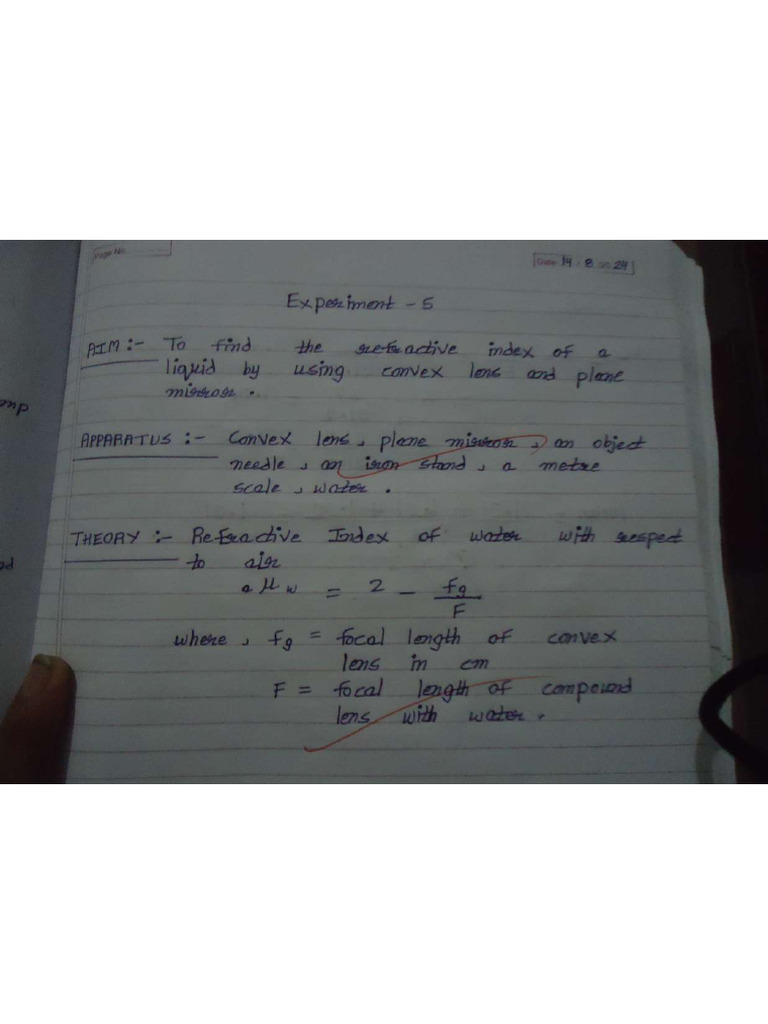 Page No.
Date 14 . 8 . 24
Experiment - 5
AIM :- To find the refractive index of a
liquid by using convex lens and plane
mirror .
APPARATUS :- Convex lens , plane mirror , an object
needle , an iron stand , a metre
scale , water .
THEORY :- Refractive Index of water with respect
to air
a μ w = 2 - fg
F
where , fg = focal length of convex
lens in cm
F = focal length of compound
lens with water .